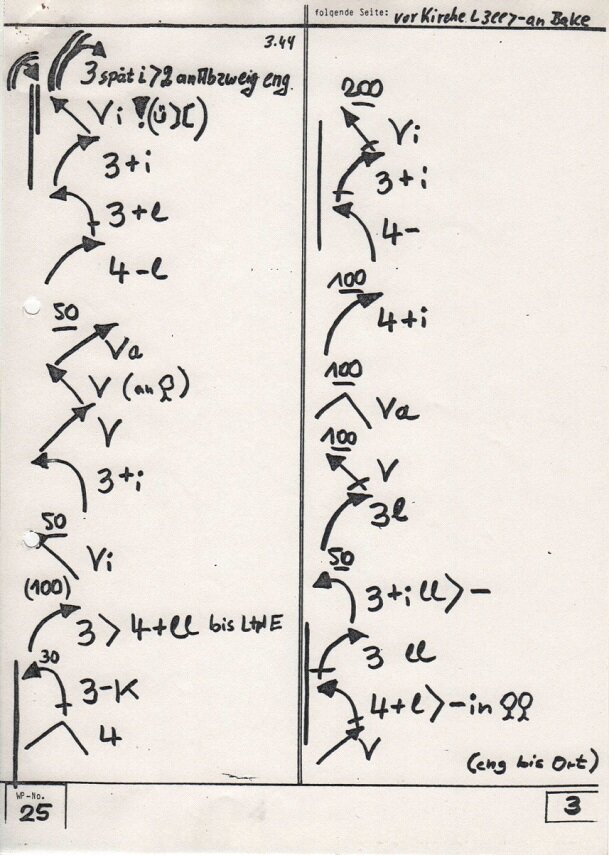 folgende Seite: vor Kirche L 3ll>-an Bake
3.44
3 spät i >2 an Abzweig eng.
Vi ! (ü)
3+i
3+l
4-l
50
Va
V (an
V
3+i
50
Vi
(100)
3 > 4+ll bis
30
3-K
4
200
Vi
3+i
4-
100
4+i
100
Va
100
V
3l
50
3+i ll>-
3 ll
4+l>-in
V
(eng bis Ort)
WP-No.
25
3